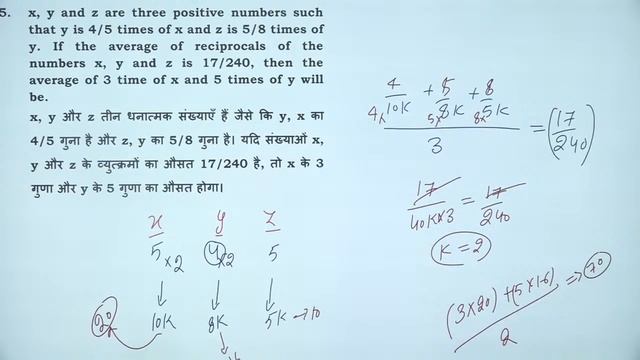 5. x, y and z are three positive numbers such
that y is 4/5 times of x and z is 5/8 times of
y. If the average of reciprocals of the
numbers x, y and z is 17/240, then the
average of 3 time of x and 5 times of y will
be.
x, y और z तीन धनात्मक संख्याएँ हैं जैसे कि y, x का
4/5 गुना है और z, y का 5/8 गुना है। यदि संख्याओं x,
y और z के व्युत्क्रमों का औसत 17/240 है, तो x के 3
गुणा और y के 5 गुणा का औसत होगा।
4 + 5 + 8
4x 10K 5x 8K 8x 5K
3
= (17/240)
17/40K×3 = 17/240
K = 2
(3×20) + (5×16) ⇒ 70
2
x y z
5×2 4×2 5
20 10K 8K 5K → 10
16